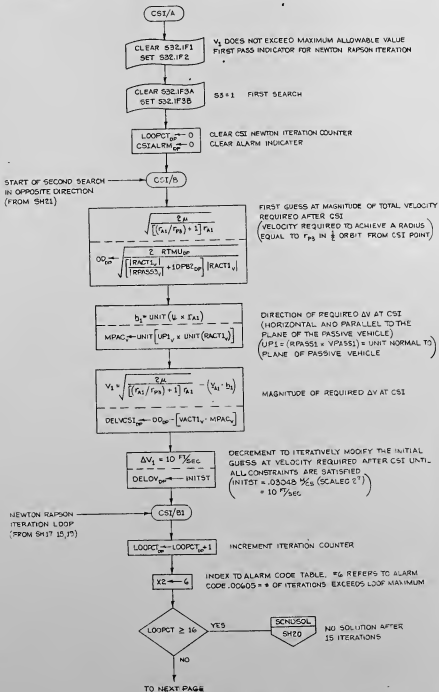 CSI/A
CLEAR S32.1F1
SET S32.1F2
V₁ DOES NOT EXCEED MAXIMUM ALLOWABLE VALUE
FIRST PASS INDICATOR FOR NEWTON RAPSON ITERATION
CLEAR S32.1F3A
SET S32.1F3B
S3=1 FIRST SEARCH
LOOPCT_DP ← 0
CSIALRM_DP ← 0
CLEAR CSI NEWTON ITERATION COUNTER
CLEAR ALARM INDICATER
START OF SECOND SEARCH
IN OPPOSITE DIRECTION
(FROM SH21)
CSI/B
√(2μ / [(r_A1/r_P3) + 1] r_A1)
DD_DP ← √(2 RTMU_DP / [|RACT1_V| / |RPASS3_V| + 1DPB2_DP] |RACT1_V|)
FIRST GUESS AT MAGNITUDE OF TOTAL VELOCITY
REQUIRED AFTER CSI
(VELOCITY REQUIRED TO ACHIEVE A RADIUS
EQUAL TO r_P3 IN ½ ORBIT FROM CSI POINT)
b₁ = UNIT (u × r_A1)
MPAC_V ← UNIT [UP1_V × UNIT (RACT1_V)]
DIRECTION OF REQUIRED ΔV AT CSI
(HORIZONTAL AND PARALLEL TO THE
PLANE OF THE PASSIVE VEHICLE)
(UP1 = (RPASS1 × VPASS1) = UNIT NORMAL TO
PLANE OF PASSIVE VEHICLE)
V₁ = √(2μ / [(r_A1/r_P3) + 1] r_A1) - (V_A1 · b₁)
DELVCSI_DP ← DD_DP - [VACT1_V · MPAC_V]
MAGNITUDE OF REQUIRED ΔV AT CSI
ΔV₁ = 10 FT/SEC
DELDV_DP ← INITST
DECREMENT TO ITERATIVELY MODIFY THE INITIAL
GUESS AT VELOCITY REQUIRED AFTER CSI UNTIL
ALL CONSTRAINTS ARE SATISFIED
(INITST = .03048 M/CS (SCALED 2⁷)
= 10 FT/SEC)
NEWTON RAPSON
ITERATION LOOP
(FROM SH17 18,19)
CSI/B1
LOOPCT_DP ← LOOPCT_DP + 1
INCREMENT ITERATION COUNTER
X2 ← 6
INDEX TO ALARM CODE TABLE, #6 REFERS TO ALARM
CODE .00605 = # OF ITERATIONS EXCEEDS LOOP MAXIMUM
LOOPCT ≥ 16
YES
SCNDSOL
SH20
NO SOLUTION AFTER
15 ITERATIONS
NO
TO NEXT PAGE